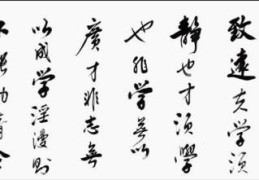 致遠夫学須
靜也才須學
也非学無以
廣才非志無
以成学淫漫則